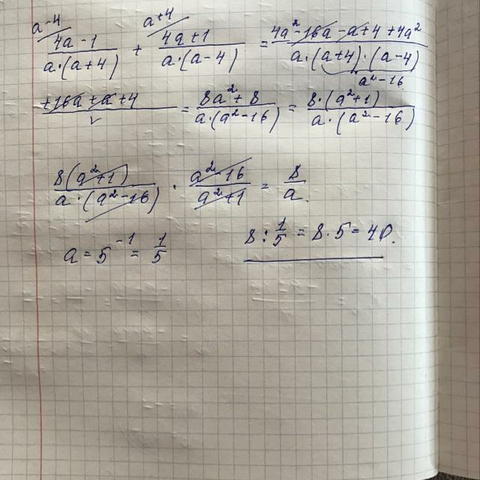 a-4 a+4
4a-1/a·(a+4) + 4a+1/a·(a-4) = 4a²-16a-a+4+4a²/a·(a+4)·(a-4)
a²-16
+16a+a+4 = 8a²+8/a·(a²-16) = 8·(a²+1)/a·(a²-16)
8(a²+1)/a·(a²-16) · a²-16/a²+1 = 8/a.
a = 5⁻¹ = 1/5
8 : 1/5 = 8·5 = 40.